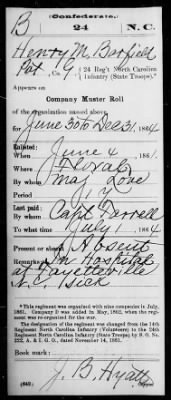 (Confederate.)
B 24 N.C.
Henry M. Barfield
Pvt, Co. G, 24 Reg't North Carolina
Infantry (State Troops).*
Appears on
Company Muster Roll
of the organization named above,
for June 30 to Dec 31, 1864
Enlisted:
When June 4, 1861
Where Floral
By whom Maj Love
Period 1 y
Last paid:
By whom Capt Farrell
To what time July 1, 1864
Present or absent Absent
Remarks: In Hospital
at Fayetteville
N.C. Sick
*This regiment was organized with nine companies in July,
1861. Company D was added in May, 1862, when the regiment
was re-organized for the war.
The designation of the regiment was changed from the 14th
Regiment North Carolina Infantry (Volunteers) to the 24th
Regiment North Carolina Infantry (State Troops) by S. O. No.
222, A. & I. G. O., dated November 14, 1861.
Book mark:
J. B. Hyatt
(642)
Copyist.